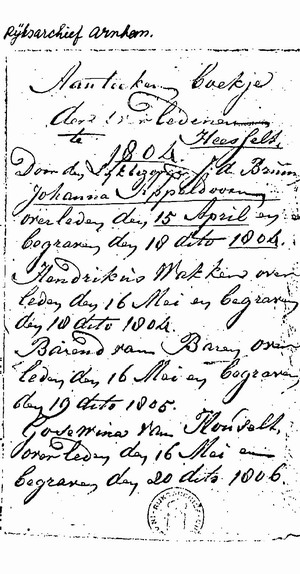 Rijksarchief Arnhem.
Aanteeken boekje
der overledenen
te Heesselt,
1804.
Door de J. de Bruin
Johanna Ippeldooren
overleden den 15 April en
begraven den 18 dito 1804.
Hendrikus Wakken over
leden den 16 Mei en begraven
den 18 dito 1804.
Barend van Baren over
leden den 16 Mei en begraven
den 19 dito 1805.
Gosewina van Housselt,
overleden den 16 Mei en
begraven den 20 dito 1806.